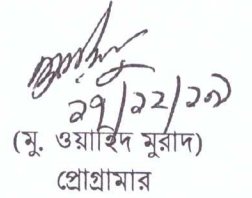 ২৭/১২/২০
(মু. ওয়াহিদ মুরাদ)
প্রোগ্রামার